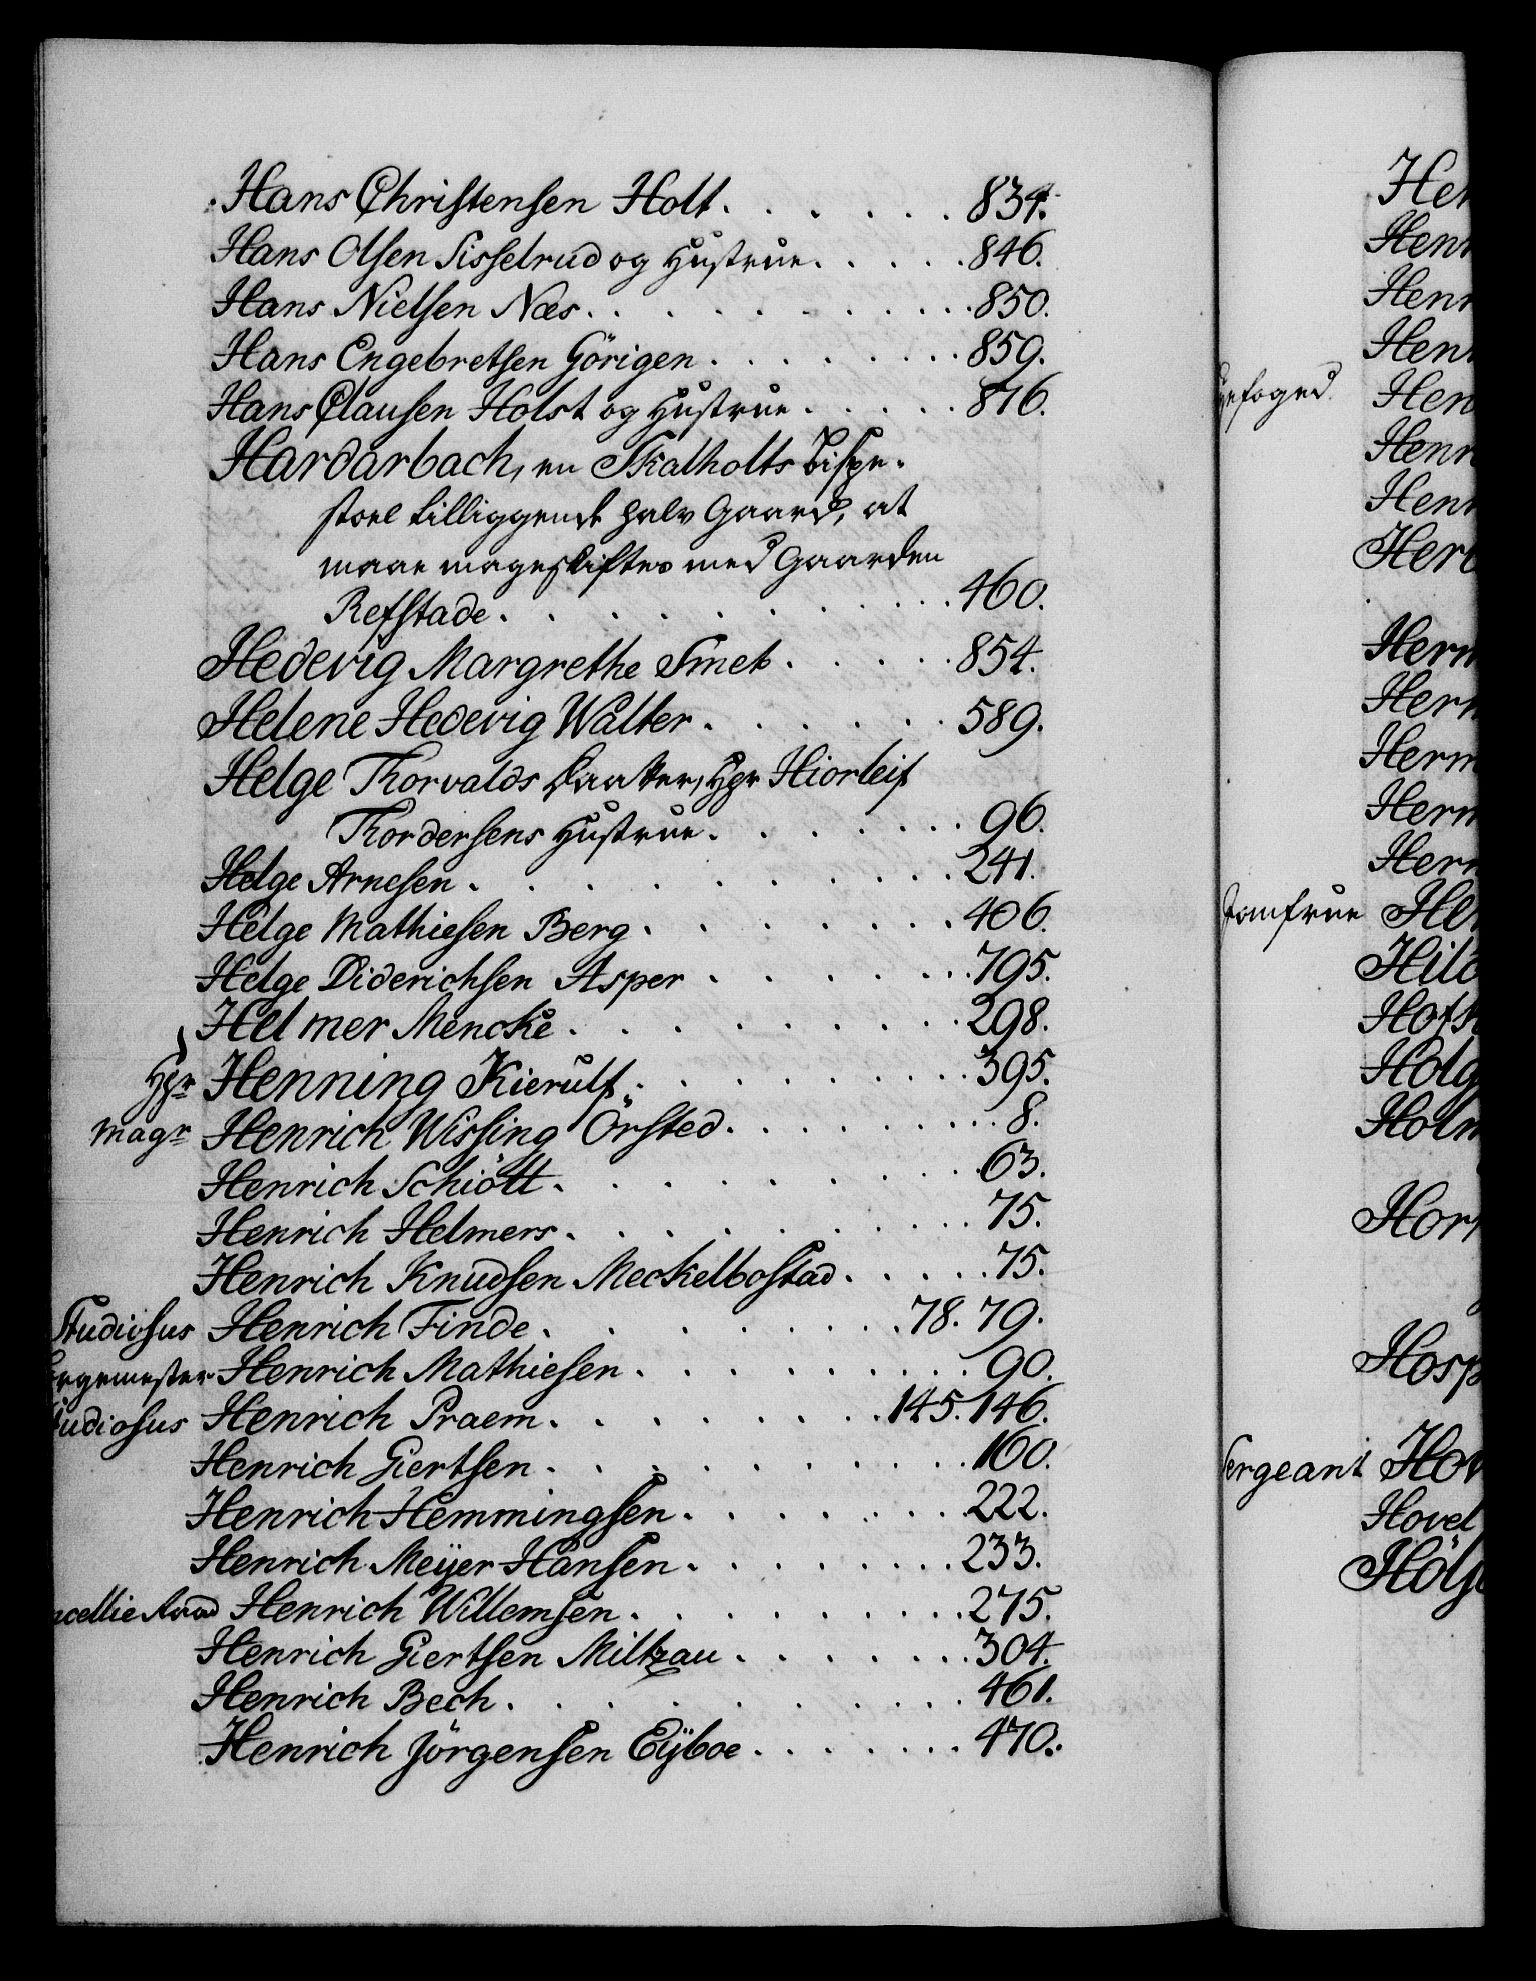 Hans Christensen Holt. . . . . . . 834.
Hans Olsen Sisselrud og Hustrue. . . . . 846.
Hans Nielsen Næs. . . . . . . . . 850.
Hans Engebretsen Görigen . . . . . . . 859.
Hans Clausen Holst og Hustrue . . . . . 876.
Hardarbach, en Skalholts Bispe-
stoel tilliggende halv Gaard, at
maae mageskiftes med Gaarden
Refstade . . . . . . . . . . 460.
Hedevig Margrethe Smet . . . . . 854.
Helene Hedevig Walter . . . . . . 589.
Helge Thorvalds Daatter, Hr Hiorleif
Thordersens Hustrue. . . . . . . 96.
Helge Arnesen . . . . . . . . . 241.
Helge Mathiesen Berg . . . . . . . 406.
Helge Diderichsen Asper . . . . . . 795.
Helmer Mencke . . . . . . . . 298.
Hr Henning Kierulf . . . . . . . . 395.
Magr Henrich Wissing Örsted. . . . . . . . . 8.
Henrich Schiött . . . . . . . . 63.
Henrich Helmers. . . . . . . . . 75.
Henrich Knudsen Meckelbostad . . . . . 75.
Studiosus Henrich Finde . . . . . . . . 78. 79.
ergemester Henrich Mathiesen . . . . . . . . 90.
tudiosus Henrich Praem. . . . . . . . 145. 146.
Henrich Giertsen . . . . . . . . . 160.
Henrich Hemmingsen. . . . . . . . 222.
Henrich Meÿer Hansen . . . . . . . . 233.
ncellie Raad Henrich Willemsen . . . . . . . . 275.
Henrich Giertsen Miltzau . . . . . . . 304.
Henrich Bech . . . . . . . . . 461.
Henrich Jörgensen Eÿboe . . . . . . . 470.
Hen
Henr
Henr
Henr
gefoged. Hen
Henr
Henr
Her
Herm
Herm
Herm
Herm
Herm
Jomfrue Her
Hild
Hofs
Holg
Holm
Horr
Hosp
Sergeant Hov
Hovel
Hölse